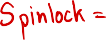 Spinlock =